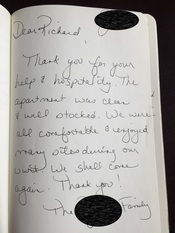 Dear Richard,
Thank you for your
help & hospitality. The
apartment was clean
& well stocked. We were
all comfortable & enjoyed
many sites during our
We shall come
again. Thank you!
The Family